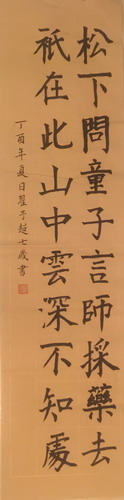 松下問童子言師採藥去
祇在此山中雲深不知處
丁酉年夏日翟予超七歲書